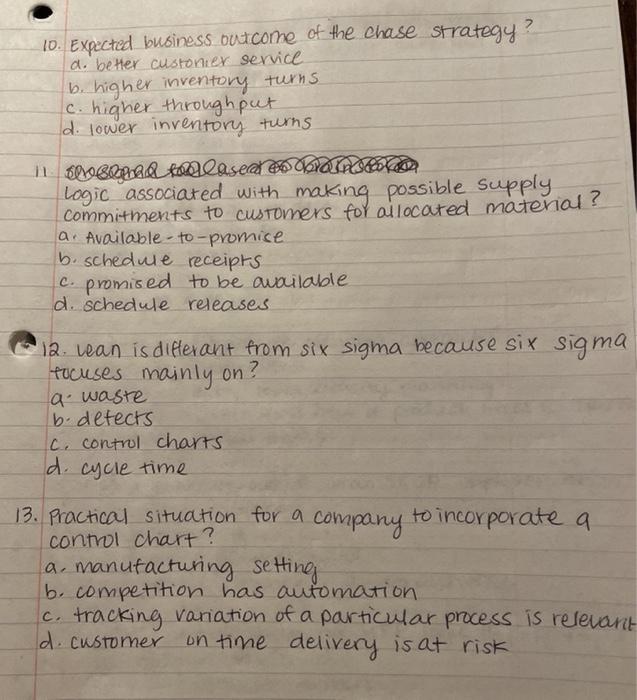 10. Expected business outcome of the chase strategy?
a. better customer service
b. higher inventory turns
c. higher throughput
d. lower inventory turns
11
Logic associated with making possible supply
commitments to customers for allocated material?
a. Available-to-promise
b. schedule receipts
c. promised to be available
d. schedule releases
12. Lean is differant from six sigma because six sigma
focuses mainly on?
a. waste
b. defects
c. control charts
d. cycle time
13. Practical situation for a company to incorporate a
control chart?
a. manufacturing setting
b. competition has automation
c. tracking variation of a particular process is relevant
d. customer on time delivery is at risk